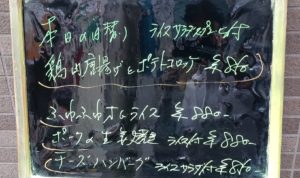 本日の日替り ライスサラダスープ付
鶏唐揚げとポテトコロッケ ¥880-
ふわふわオムライス ¥880-
ポークの生姜焼 ライス付 ¥880-
チーズハンバーグ ライスサラダ付 ¥880-